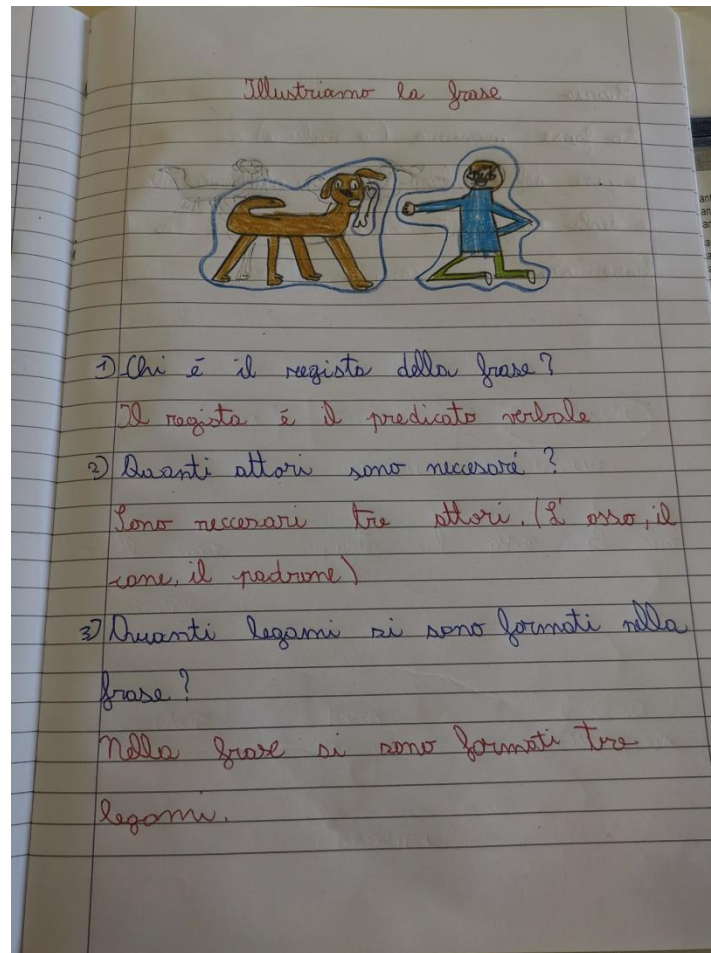 Illustriamo la frase
1) Chi è il reegista della frase?
Il regista è il predicato verbale
2) Quanti attori sono neccesaré?
Sono neccesari tre attori. (L'osso, il
cane, il padrone)
3) Quanti legami si sono formati nella
frase?
Nella frase si sono formati tre
legami.